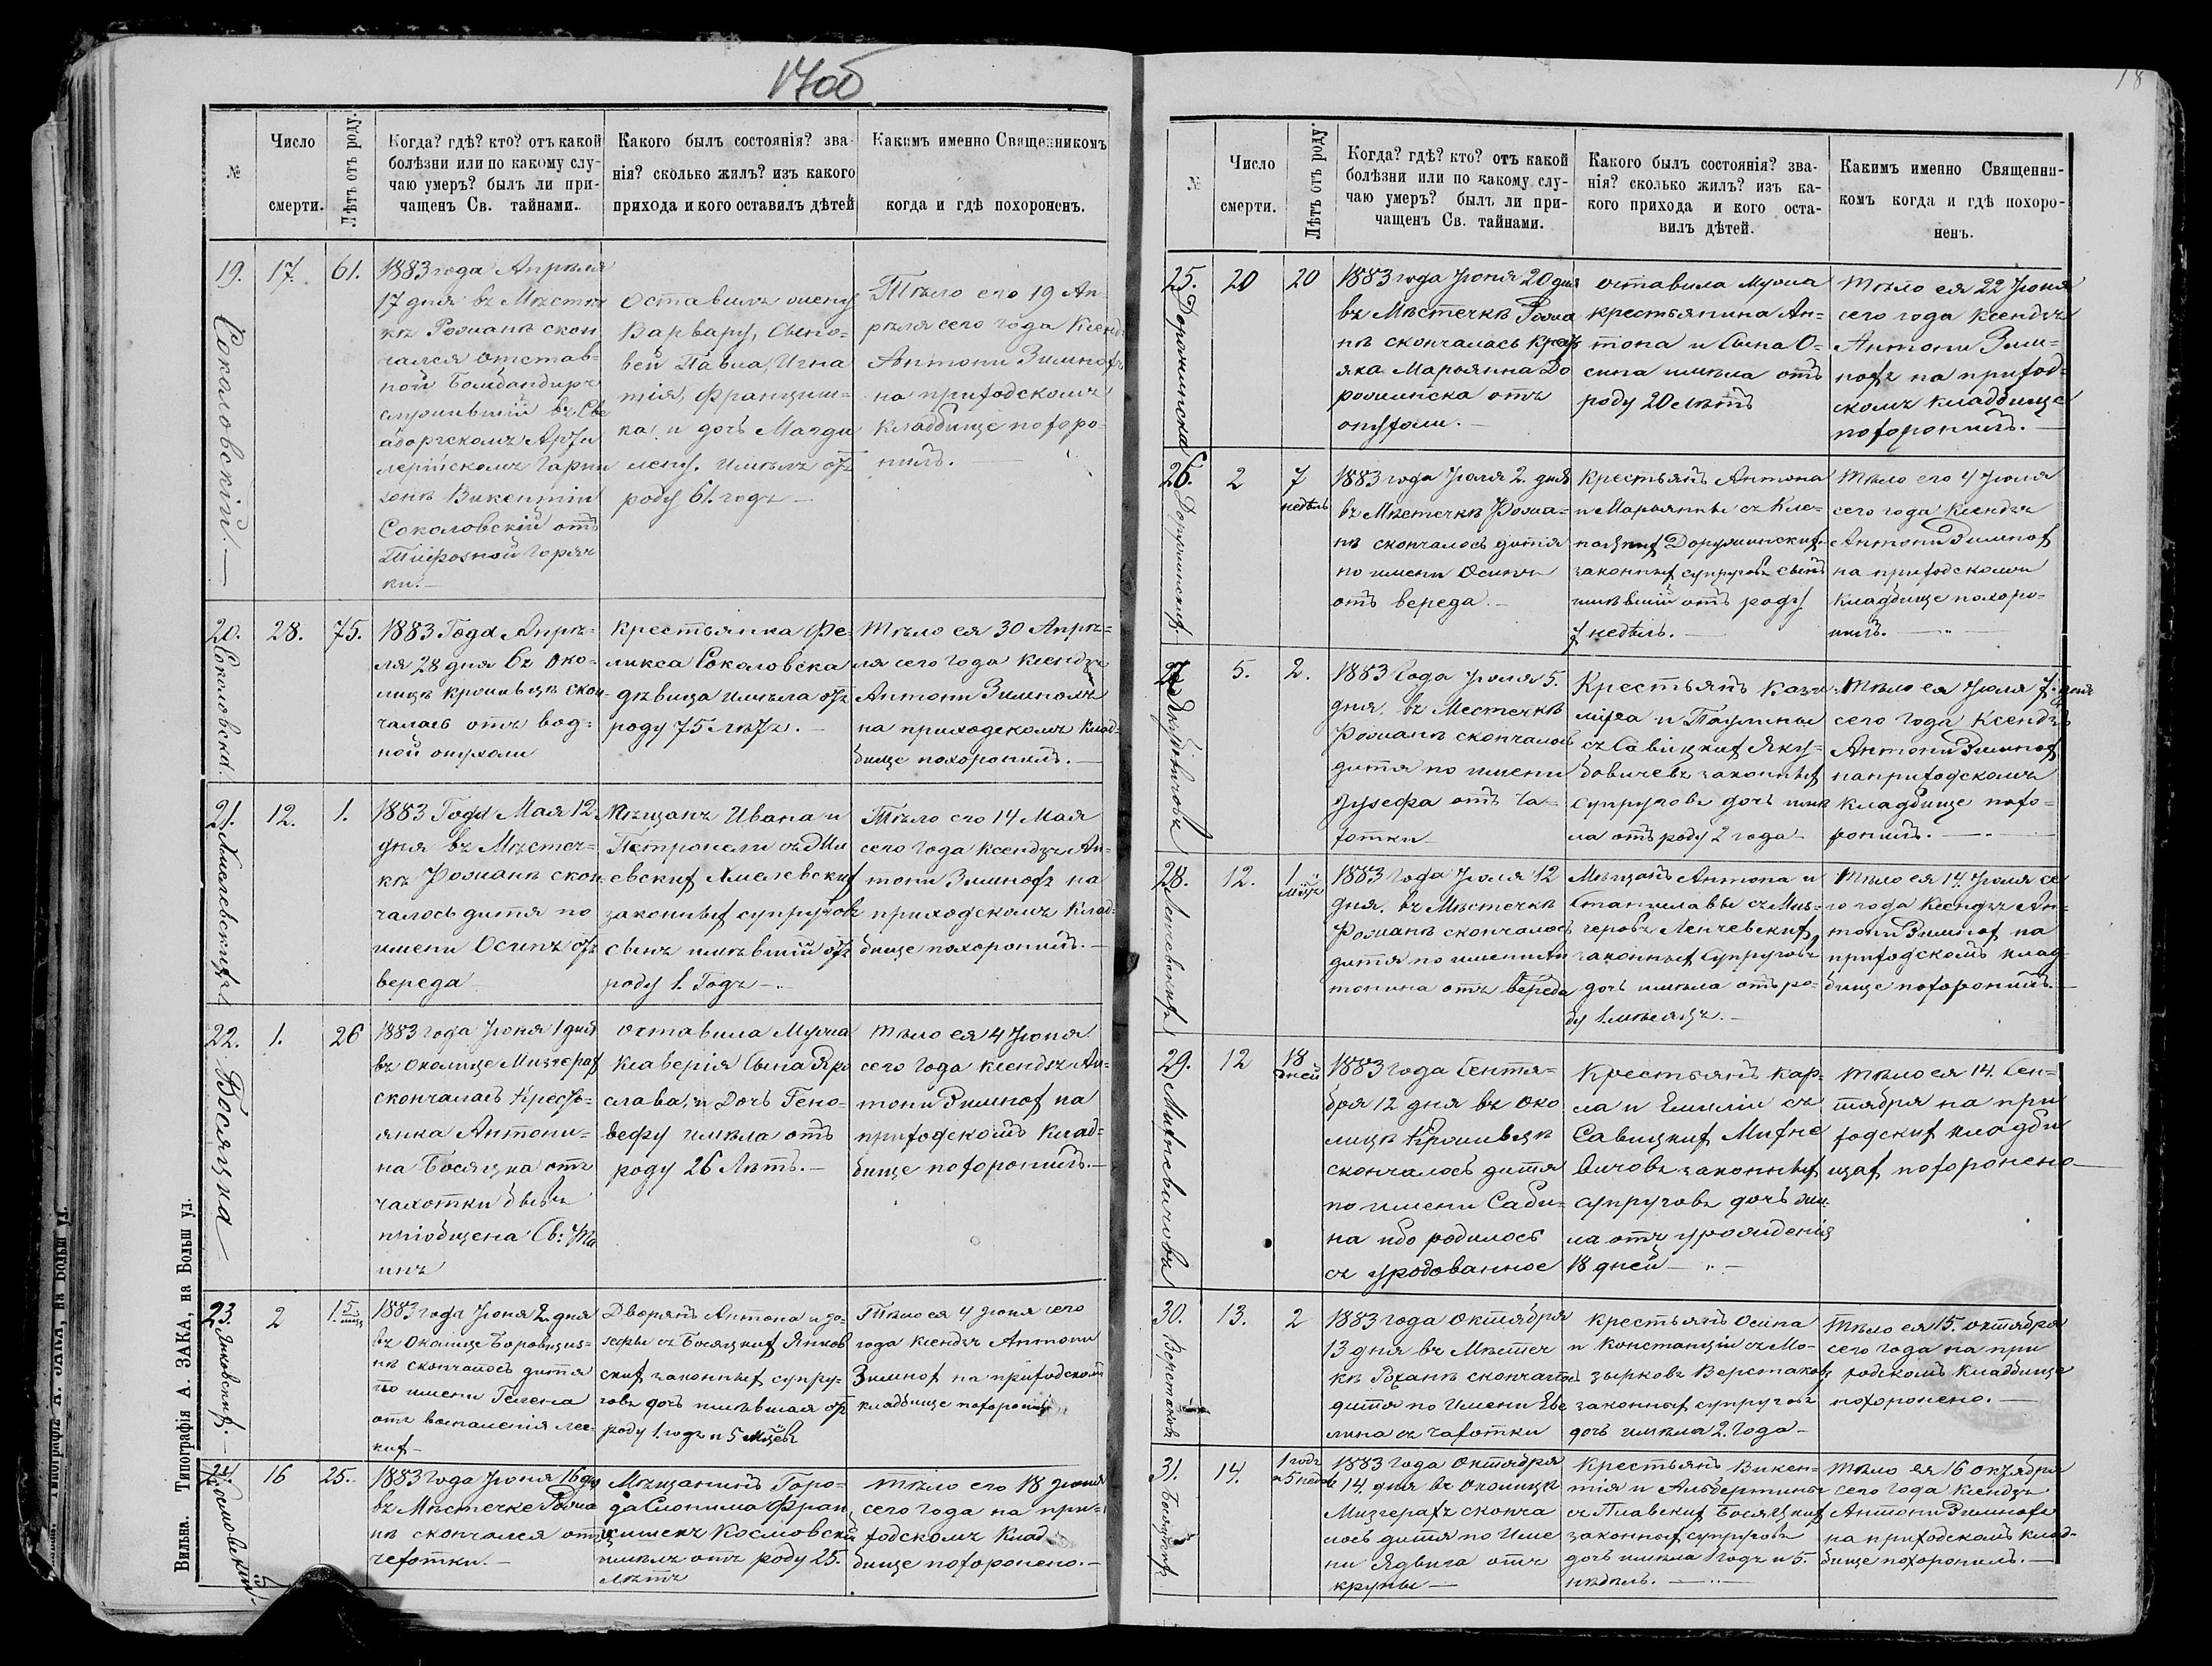 17об
18
№
Число
смерти.
Лѣтъ отъ роду.
Когда? гдѣ? кто? отъ какой
болѣзни или по какому слу-
чаю умеръ? былъ ли при-
чащенъ Св. тайнами.
Какого былъ состоянія? зва-
нія? сколько жилъ? изъ какого
прихода и кого оставилъ дѣтей
Какимъ именно Священникомъ
когда и гдѣ похороненъ.
19.
Соколовскій.
17.
61.
1883 года Апрѣля
17 дня въ Мѣстеч
кѣ Рожанѣ скон
чался отстав-
ной Бомбандиръ
служившій въ Све
аборгскомъ Арти
лерійскомъ Гарни
зонѣ Викентій
Соколовскій отъ
Тифозной Горяч
ки.
Оставилъ жену
Варвару, Сыно-
вей Павла, Игна
тія, Францишка
и дочь Магда
лену. имѣлъ отъ
роду 61. годъ
Тѣло его 19 Ап-
рѣля сего года Ксендзъ
Антони Зимнохъ
на приходскомъ
Кладбище похоро-
нилъ.
20.
Соколовска
28.
75.
1883 Года Апрѣ-
ля 28 дня въ Око-
лицѣ Крошивцѣ скон-
чалась отъ вод-
ной опухоли
Крестьянка Фе-
ликса Соколовска
дѣвица имѣла отъ
роду 75 лѣтъ.
Тѣло ея 30 Апрѣ-
ля сего года Ксендзъ
Антони Зимнохъ
на приходскомъ Клад-
бище похоронилъ.
21.
12.
1.
1883 Года Мая 12
дня въ Мѣстеч-
кѣ Рожанѣ скон
чалось дитя по
имени Осипъ отъ
вереда
Мѣщанъ Ивана и
Петронели
Хмелевских
законных супруговъ
сынъ имѣвшій отъ
роду 1. Годъ
Тѣло его 14 Мая
сего года Ксендзъ Ан-
тони Зимнохъ на
приходскомъ Клад-
бище похоронилъ.
22.
Босяцка
1.
26
1883 года Іюня 1 дня
въ околице Мизгерах
скончалась Кресть-
янка Антони-
на Босяцка отъ
чахотки бывъ
пріобщена Св: Та
инъ
оставила мужа
Клаверія Сына Яро
слава, и Дочь Гено-
вефу имѣла отъ
роду 26 Лѣтъ.
Тѣло ея 4 Іюня
сего года Ксендзъ Ан-
тони Зимнох на
приходскомъ Клад-
бище похоронилъ.
23.
Янковских.
2
1. 5
1883 года Іюня 2 дня
въ Околице
скончалось дитя
по имени Гелена
отъ воспаленія лег-
ких
Дворянъ Антона и Зо-
съ Босяцких Янков
ских законных супру-
говъ дочь имѣвшая отъ
роду 1. годъ и 5 мцевъ
Тѣло ея 4 Іюня сего
года Ксендзъ Антони
Зимнох на приходскомъ
кладбище похоронилъ.
24.
Космовскій
16
25.
1883 года Іюня 16 дня
въ Мѣстечке Рожа
нѣ скончался отъ
чехотки.
Мѣщанинъ Горо-
да Слонима Фран
цишекъ Космовскій
имѣлъ отъ роду 25.
лѣтъ
Тѣло его 18 Іюня
сего года на при-
ходскомъ Клад
бище похоронено.
Вильна. Типографія А. ЗАКА, на Больш уз.
№
Число
смерти.
Лѣтъ отъ роду.
Когда? гдѣ? кто? отъ какой
болѣзни или по какому слу-
чаю умеръ? былъ ли при-
чащенъ Св. тайнами.
Какого былъ состоянія? зва-
нія? сколько жилъ? изъ ка-
кого прихода и кого оста-
вилъ дѣтей.
Какимъ именно Священни-
комъ когда и гдѣ похоро-
ненъ.
25.
20
20
1883 года Іюня 20 дня
въ Мѣстечкѣ Рожа
нѣ скончалась Крест
янка Марьянна До
роминска отъ
опухоли.
оставила мужа
крестьянина Ан-
тона и Сына О-
сипа имѣла отъ
роду 20 лѣтъ
Тѣло ея 22 Іюня
сего года Ксендзъ
Антони Зим-
нохъ на приход-
скомъ кладбище
похоронилъ.
26.
2
7
недѣль
1883 года Іюля 2. дня
въ Мѣстечкѣ Рожа-
нѣ скончалось дитя
по имени Осипъ
отъ вереда.
Крестьянъ Антона
и Марьянны съ
законных супруговъ сынъ
имѣвшій отъ роду
7 недѣль.
Тѣло его 4 Іюля
сего года Ксендзъ
Антони Зимнох
на приходскомъ
Кладбище похоро-
нилъ.
27
Якубовичовъ
5.
2.
1883 Года Іюля 5.
дня. въ Местечкѣ
Рожанѣ скончалось
дитя по имени
Іузефа отъ Ча-
хотки
Крестьянъ Кази-
міра и Паулины
съ Савіцких Яку-
бовичевъ законных
супруговъ дочь имѣ
ла отъ роду 2 года
Тѣло ея Іюля 7. дня
сего Года Ксендзъ
Антони Зимнох
на приходскомъ
кладбище похо-
ронилъ.
28.
12.
1
1883 года Іюля 12
дня. въ Мѣстечкѣ
Рожанѣ скончалось
дитя по имени Ан
тонина отъ вереда
Мѣщанъ Антона и
Станиславы съ Миз-
геровъ Ленчевских
законных Супруговъ
дочь имѣла отъ ро-
ду 1. мѣсяцъ.
Тѣло ея 14. Іюля се
го года Ксендзъ Ан-
тони Зимнох на
приходскомъ клад
бище похоронилъ.
29.
Михневичовъ
12
18
дней
1883 года Сентя-
бря 12 дня въ Око
лицѣ Крошивцѣ
скончалось дитя
по имени Саби-
на ибо родилось
съ уродованное
Крестьянъ Кар-
ла и Емиліи съ
Савицких Михне
вичовъ законных
супруговъ дочь имѣ
ла отъ урожденія
18 дней
Тѣло ея 14. Сен-
тября на при
ходских кладби
щах похоронено
30.
Верстаковъ
13.
2
1883 года Октября
13 дня въ Мѣстеч
кѣ Рожанѣ скончалось
дитя по имени Еве
лина съ чахотки
Крестьянъ Осипа
и Констанціи съ Мо-
зырковъ Верстаковъ
законных супруговъ
дочь имѣла 2. Года
Тѣло ея 15. октября
сего года на при
ходскомъ Кладбище
похоронено.
31.
14.
1 годъ
и 5 недѣль
1883 года Октября
14 дня въ Околицѣ
Мизгерахъ сконча
лось дитя по Име
ни Ядвига отъ
крупы
Крестьянъ Викен-
тія и Альбертины
съ Плавских Босяцких
законных супруговъ
дочь имѣла 1 годъ и 5.
недѣль.
Тѣло ея 16 октября
сего года Ксендзъ
Антони Зимнохъ
на приходскомъ клад-
бище похоронилъ.